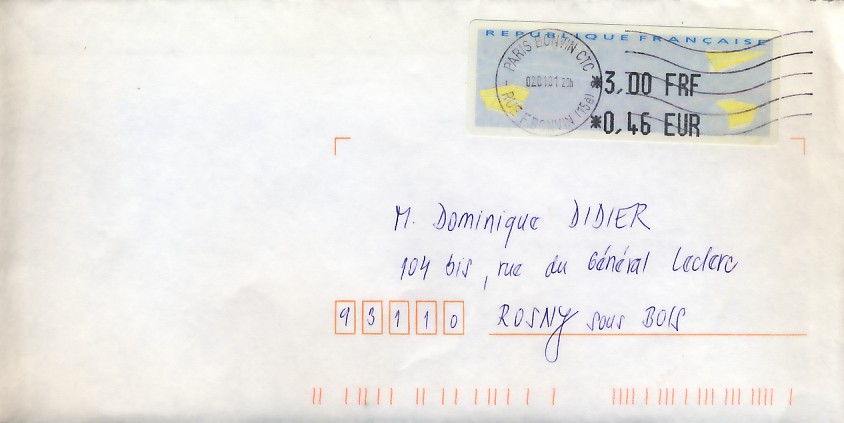 REPUBLIQUE FRANÇAISE
PARIS BONVIN CTC
RUE F. BONVIN (15e)
*3,00 FRF
*0,46 EUR
M. Dominique DIDIER
104 bis, rue du Général Leclerc
93110 ROSNY sous BOIS